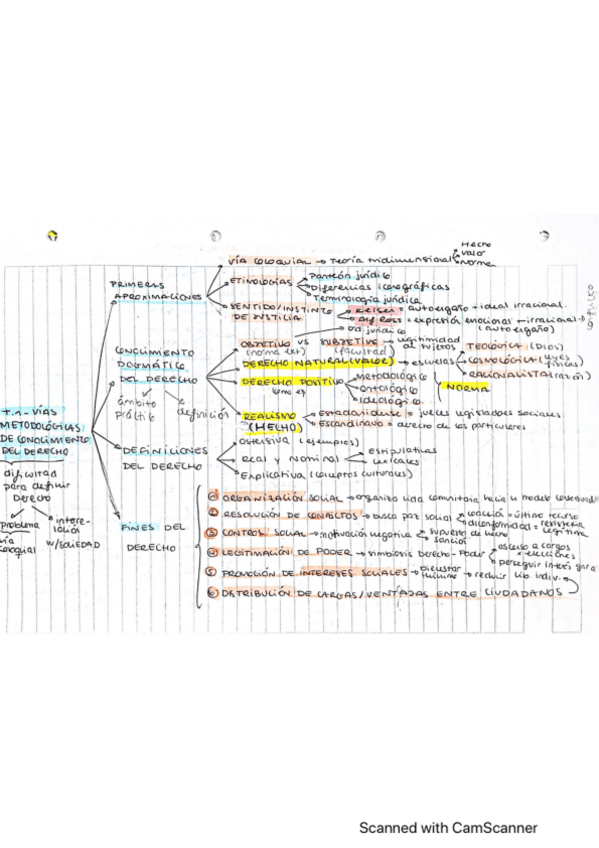 Hecho
VÍA COLOQUIAL → Teoría tridimensional Valor
Norma
PRIMERAS APROXIMACIONES
ETIMOLOGÍAS
Panteón jurídico
Diferencias iconográficas
Terminología jurídica
SENTIDO/INSTINTO DE JUSTICIA
Kelsen = autoengaño → ideal irracional.
Alf Ross = expresión emocional → irracional →
(autoengaño)
instinto
CONOCIMIENTO DOGMÁTICO DEL DERECHO
ámbito práctico
definición
OBJETIVO VS SUBJETIVO
(norma ext) (facultad)
ord. jurídico
legitimidad al sujetos
DERECHO NATURAL (VALOR) → escuelas
TEOLÓGICA (DIOS)
COSMOLÓGICA (leyes físicas)
RACIONALISTA (razón)
DERECHO POSITIVO
como es
metodológico
ontológico
ideológico
NORMA
REALISMO (HECHO)
Estadounidense = jueces legisladores sociales
Escandinavo = derecho de los particulares
T.1 - VÍAS
METODOLÓGICAS
DE CONOCIMIENTO
DEL DERECHO
dificultad
para definir
Derecho
problema
vía
coloquial
interre-
lación
w/SOCIEDAD
DEFINICIONES DEL DERECHO
Ostensiva (ejemplos)
Real y Nominal
estipulativas
lexicales
Explicativa (conceptos culturales)
FINES DEL DERECHO
① ORGANIZACIÓN SOCIAL → organiza una comunitaria hacia un modelo
② RESOLUCIÓN DE CONFLICTOS → busca paz social
coacción = último recurso
disconformidad → resistencia legítima
③ CONTROL SOCIAL → motivación negativa
supuesto de hecho
sanción
④ LEGITIMACIÓN DE PODER → simbiosis Derecho-Poder
acceso a cargos → elecciones
perseguir interés gara
⑤ PROMOCIÓN DE INTERESES SOCIALES → bienestar mínimo → reducir lib. indiv.
⑥ DISTRIBUCIÓN DE CARGAS/VENTAJAS ENTRE CIUDADANOS
Scanned with CamScanner